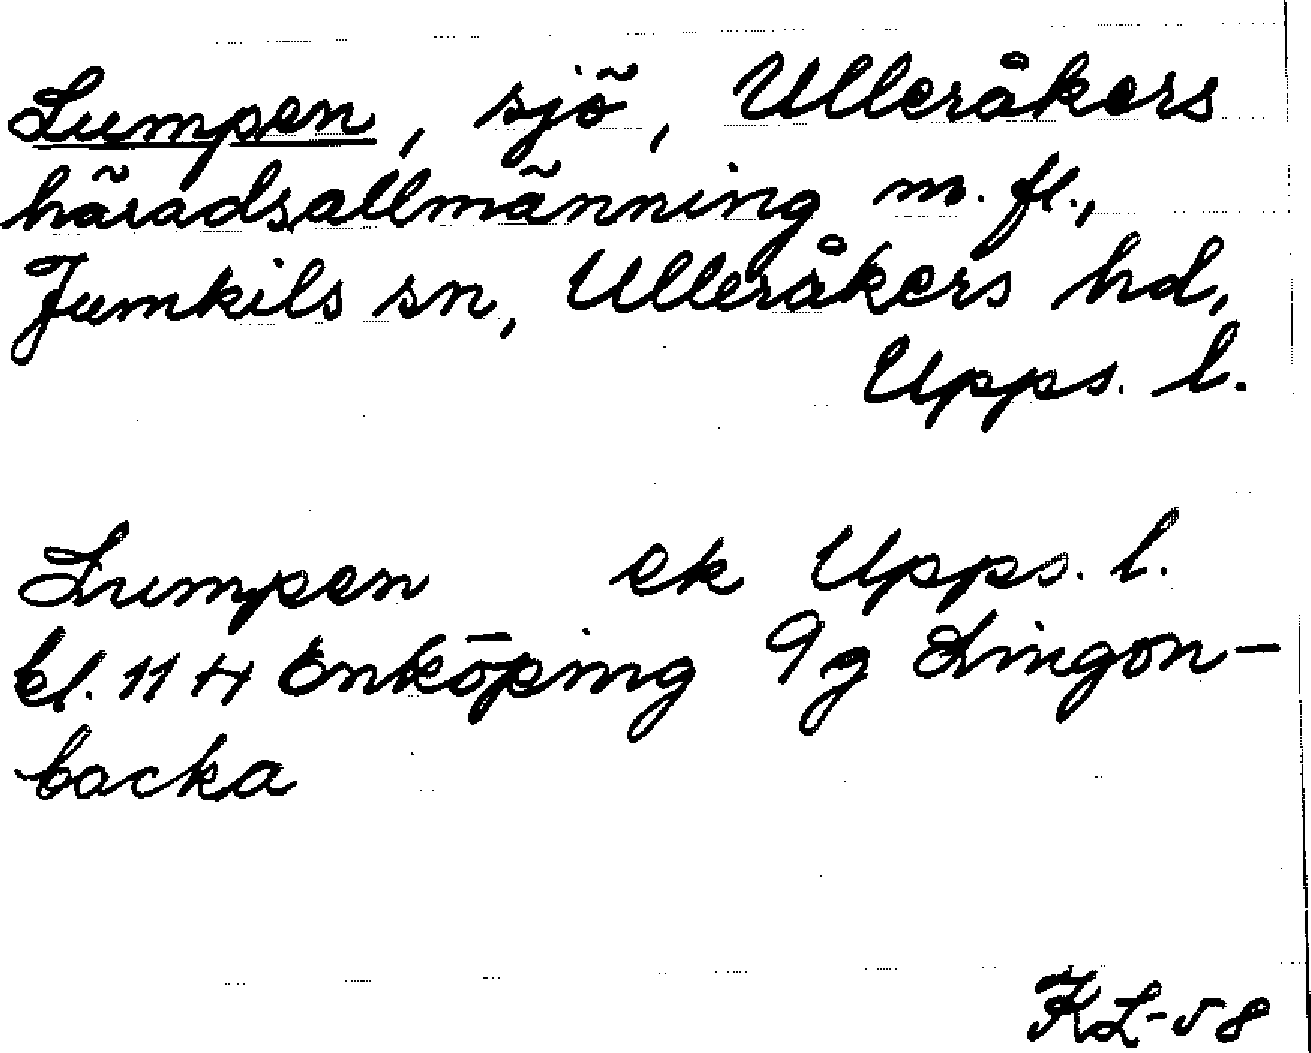 Lumpen, sjö, Ulleråkers
häradsallmänning m.fl.,
Jumkils sn, Ulleråkers hd,
Upps. l.
Lumpen ek Upps. l.
bl. 11 H Enköping 9g Lingon-
backa
KL-58